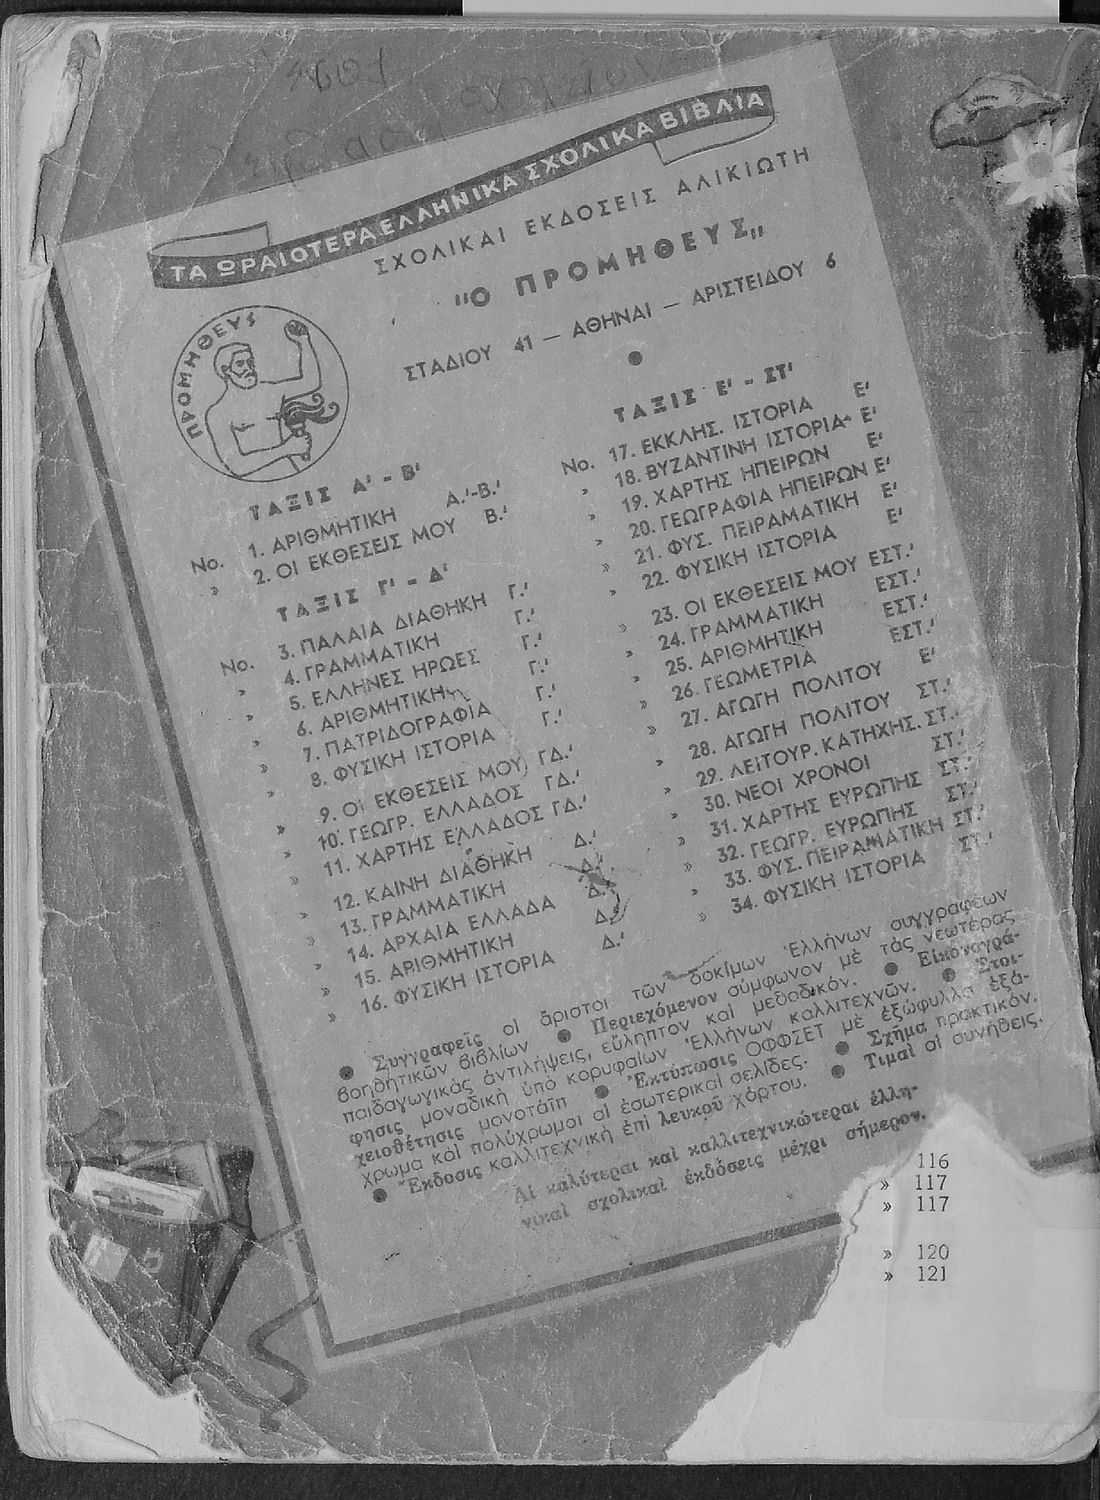 ΤΑ ΩΡΑΙΟΤΕΡΑ ΕΛΛΗΝΙΚΑ ΣΧΟΛΙΚΑ ΒΙΒΛΙΑ
ΣΧΟΛΙΚΑΙ ΕΚΔΟΣΕΙΣ ΑΛΙΚΙΩΤΗ
"Ο ΠΡΟΜΗΘΕΥΣ"
ΣΤΑΔΙΟΥ 41 — ΑΘΗΝΑΙ — ΑΡΙΣΤΕΙΔΟΥ 6
ΠΡΟΜΗΘΕΥΣ
ΤΑΞΙΣ Α' - Β'
Νο. 1. ΑΡΙΘΜΗΤΙΚΗ Α.'-Β.'
» 2. ΟΙ ΕΚΘΕΣΕΙΣ ΜΟΥ Β.'
ΤΑΞΙΣ Γ' - Δ'
Νο. 3. ΠΑΛΑΙΑ ΔΙΑΘΗΚΗ Γ.'
» 4. ΓΡΑΜΜΑΤΙΚΗ Γ.'
» 5. ΕΛΛΗΝΕΣ ΗΡΩΕΣ Γ.'
» 6. ΑΡΙΘΜΗΤΙΚΗ Γ.'
» 7. ΠΑΤΡΙΔΟΓΡΑΦΙΑ Γ.'
» 8. ΦΥΣΙΚΗ ΙΣΤΟΡΙΑ Γ.'
» 9. ΟΙ ΕΚΘΕΣΕΙΣ ΜΟΥ ΓΔ.'
» 10. ΓΕΩΓΡ. ΕΛΛΑΔΟΣ ΓΔ.'
» 11. ΧΑΡΤΗΣ ΕΛΛΑΔΟΣ ΓΔ.'
» 12. ΚΑΙΝΗ ΔΙΑΘΗΚΗ Δ.'
» 13. ΓΡΑΜΜΑΤΙΚΗ Δ.'
» 14. ΑΡΧΑΙΑ ΕΛΛΑΔΑ Δ.'
» 15. ΑΡΙΘΜΗΤΙΚΗ Δ.'
» 16. ΦΥΣΙΚΗ ΙΣΤΟΡΙΑ Δ.'
ΤΑΞΙΣ Ε' - ΣΤ'
Νο. 17. ΕΚΚΛΗΣ. ΙΣΤΟΡΙΑ Ε'
» 18. ΒΥΖΑΝΤΙΝΗ ΙΣΤΟΡΙΑ Ε'
» 19. ΧΑΡΤΗΣ ΗΠΕΙΡΩΝ Ε'
» 20. ΓΕΩΓΡΑΦΙΑ ΗΠΕΙΡΩΝ Ε'
» 21. ΦΥΣ. ΠΕΙΡΑΜΑΤΙΚΗ Ε'
» 22. ΦΥΣΙΚΗ ΙΣΤΟΡΙΑ Ε'
» 23. ΟΙ ΕΚΘΕΣΕΙΣ ΜΟΥ ΕΣΤ.'
» 24. ΓΡΑΜΜΑΤΙΚΗ ΕΣΤ.'
» 25. ΑΡΙΘΜΗΤΙΚΗ ΕΣΤ.'
» 26. ΓΕΩΜΕΤΡΙΑ ΕΣΤ.'
» 27. ΑΓΩΓΗ ΠΟΛΙΤΟΥ Ε'
» 28. ΑΓΩΓΗ ΠΟΛΙΤΟΥ ΣΤ.'
» 29. ΛΕΙΤΟΥΡ. ΚΑΤΗΧΗΣ. ΣΤ.'
» 30. ΝΕΟΙ ΧΡΟΝΟΙ ΣΤ.'
» 31. ΧΑΡΤΗΣ ΕΥΡΩΠΗΣ ΣΤ.'
» 32. ΓΕΩΓΡ. ΕΥΡΩΠΗΣ ΣΤ.'
» 33. ΦΥΣ. ΠΕΙΡΑΜΑΤΙΚΗ ΣΤ.'
» 34. ΦΥΣΙΚΗ ΙΣΤΟΡΙΑ ΣΤ.'
● Συγγραφεῖς οἱ ἄριστοι τῶν δοκίμων Ἑλλήνων συγγραφέων
βοηθητικῶν βιβλίων ● Περιεχόμενον σύμφωνον μὲ τὰς νεωτέρας
παιδαγωγικὰς ἀντιλήψεις, εὔληπτον καὶ μεθοδικόν. ● Εἰκονογρά-
φησις μοναδικὴ ὑπὸ κορυφαίων Ἑλλήνων καλλιτεχνῶν. ● Στοι-
χειοθέτησις μονοτάϊπ ● Ἐκτύπωσις ΟΦΦΣΕΤ μὲ ἐξώφυλλα ἑξά-
χρωμα καὶ πολύχρωμοι αἱ ἐσωτερικαὶ σελίδες. ● Σχῆμα πρακτικόν.
● Ἔκδοσις καλλιτεχνικὴ ἐπὶ λευκοῦ χάρτου. ● Τιμαὶ αἱ συνήθεις.
Αἱ καλύτεραι καὶ καλλιτεχνικώτεραι ἑλλη-
νικαὶ σχολικαὶ ἐκδόσεις μέχρι σήμερον.
116
» 117
» 117
» 120
» 121